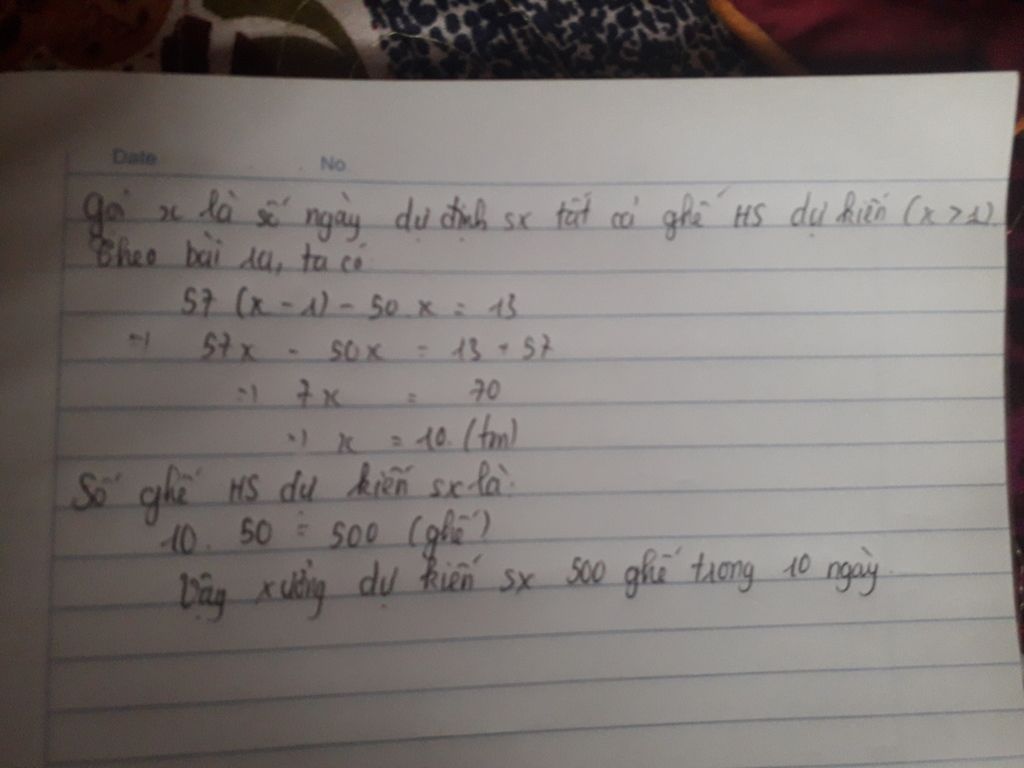 Date No
Gọi x là số ngày dự định sx tất cả ghế HS dự kiến (x > 1).
Theo bài ra, ta có:
57 (x - 1) - 50 x = 13
=> 57x - 50x = 13 + 57
=> 7x = 70
=> x = 10. (tm)
Số ghế HS dự kiến sx là:
10. 50 = 500 (ghế)
Vậy xưởng dự kiến sx 500 ghế trong 10 ngày.